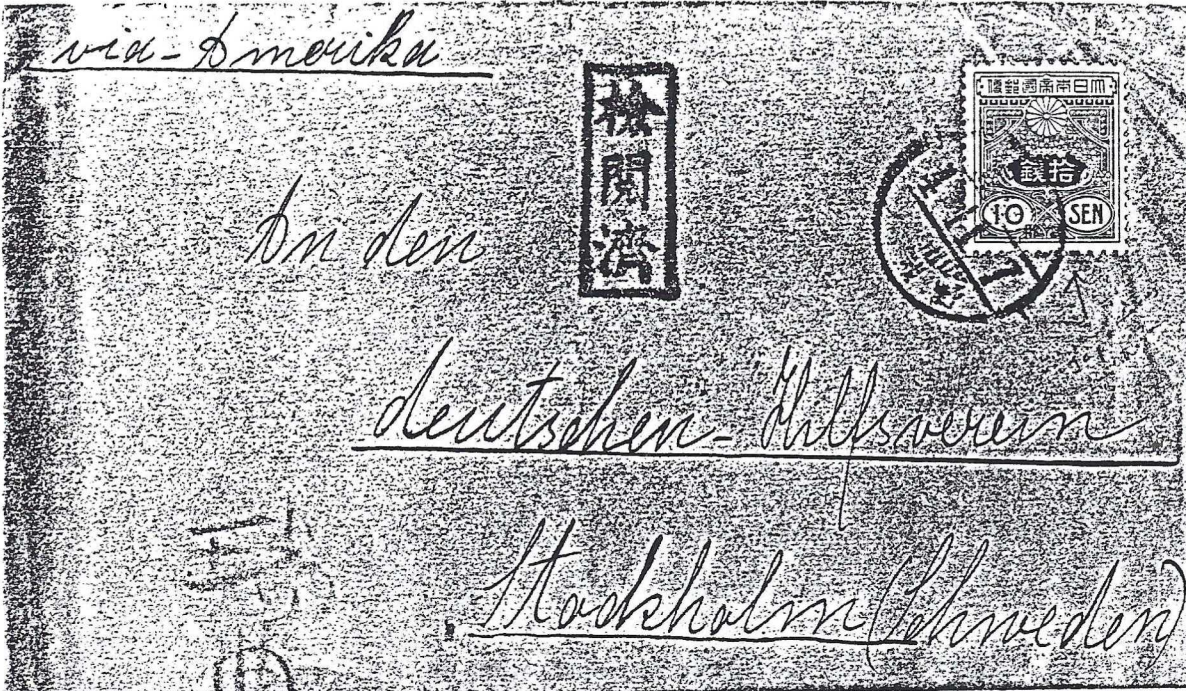 via-Amerika
検閲済
大日本帝國郵便
拾銭
10 SEN
An den
deutschen-Hilfsverein
Stockholm (Schweden)